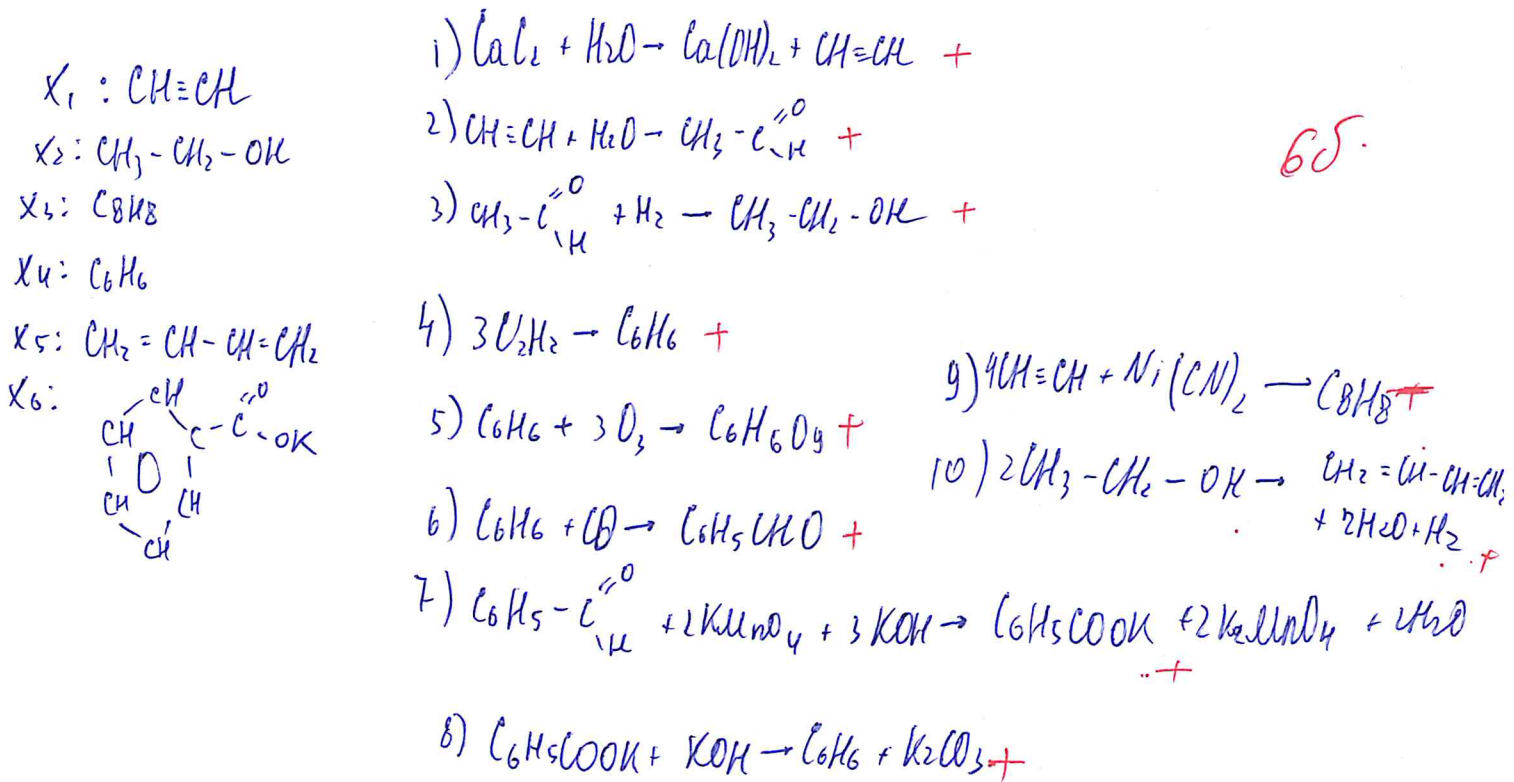 X₁ : CH≡CH
X₂: CH₃-CH₂-OH
X₃: C8H8
X₄: C₆H₆
X₅: CH₂=CH-CH=CH₂
X₆:
CH
CH C-C=O
-OK
CH CH
CH
1) CaC₂ + H₂O → Ca(OH)₂ + CH≡CH +
2) CH≡CH + H₂O → CH₃-C=O -H +
3) CH₃-C=O -H + H₂ → CH₃-CH₂-OH +
4) 3C₂H₂ → C₆H₆ +
5) C₆H₆ + 3O₃ → C₆H₆O₉ +
6) C₆H₆ + CO → C₆H₅CHO +
7) C₆H₅-C=O -H +2KMnO₄ + 3KOH → C₆H₅COOK +2K₂MnO₄ + 2H₂O
+
8) C₆H₅COOK + KOH → C₆H₆ + K₂CO₃ +
9) 4CH≡CH + Ni(CN)₂ → C8H8 +
10) 2CH₃-CH₂-OH → CH₂=CH-CH=CH₂
+ 2H₂O+H₂
+
6б.